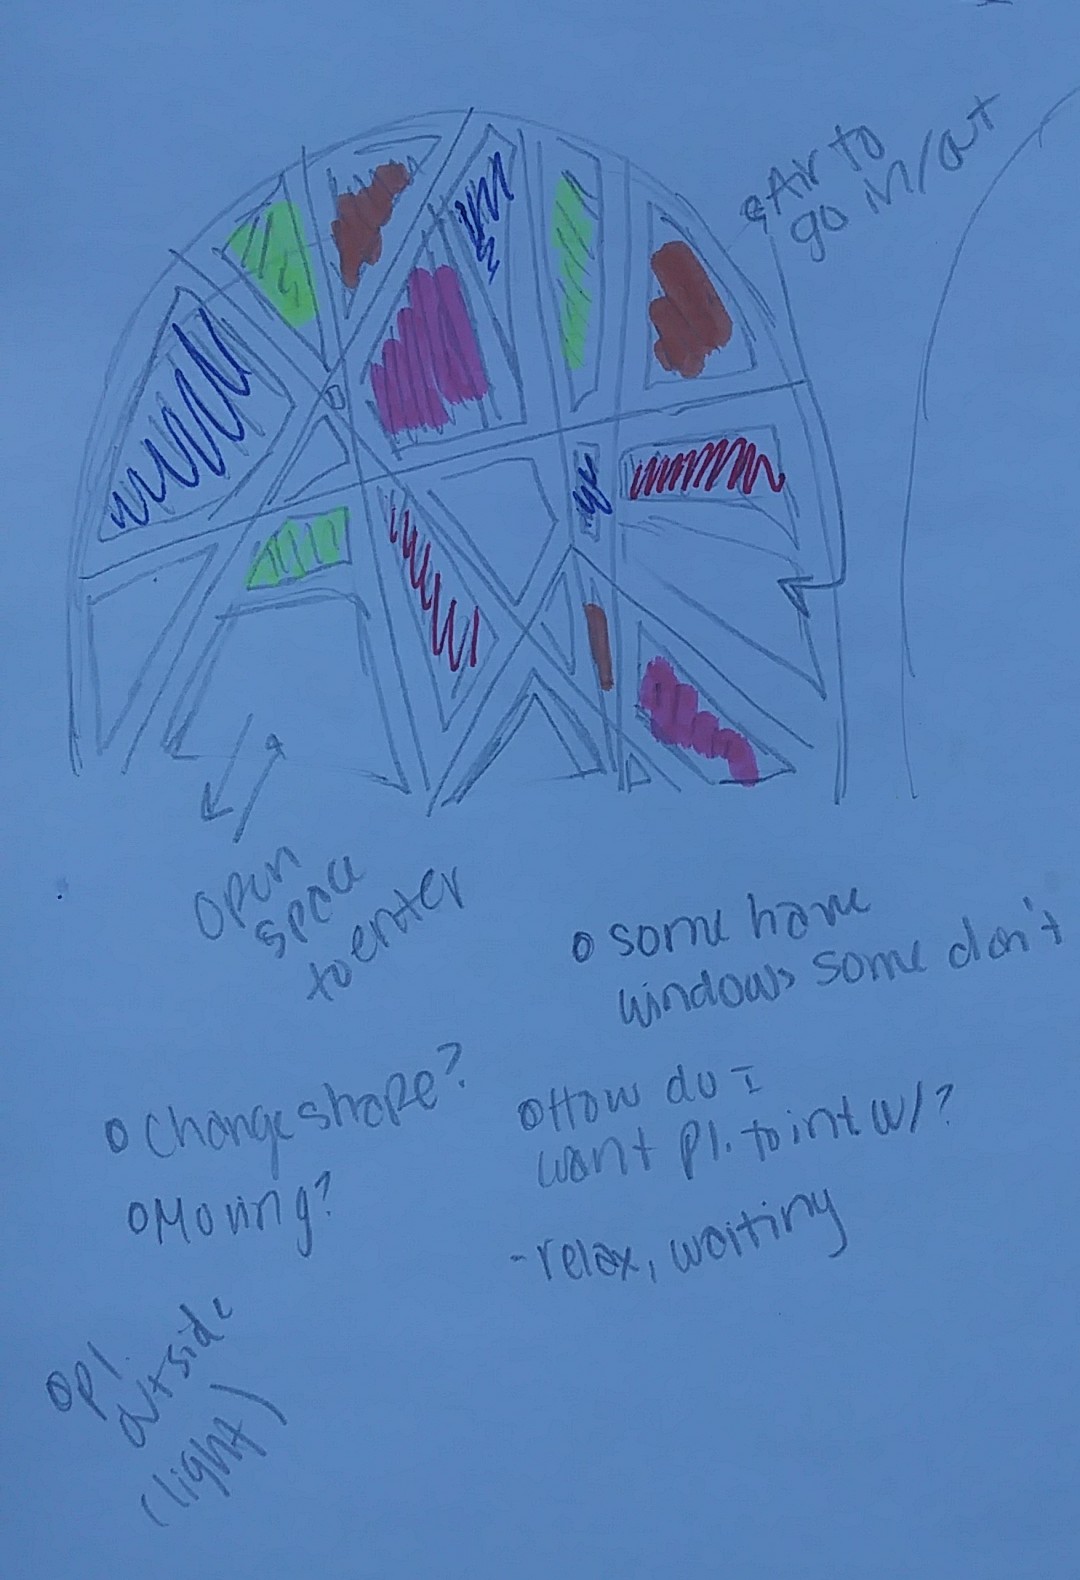 Air to
go in/out
open
space
to enter
some have
windows some don't
Change shape?
Moving?
How do I
want pl. to int w/?
-relax, waiting
pl.
outside
(light)